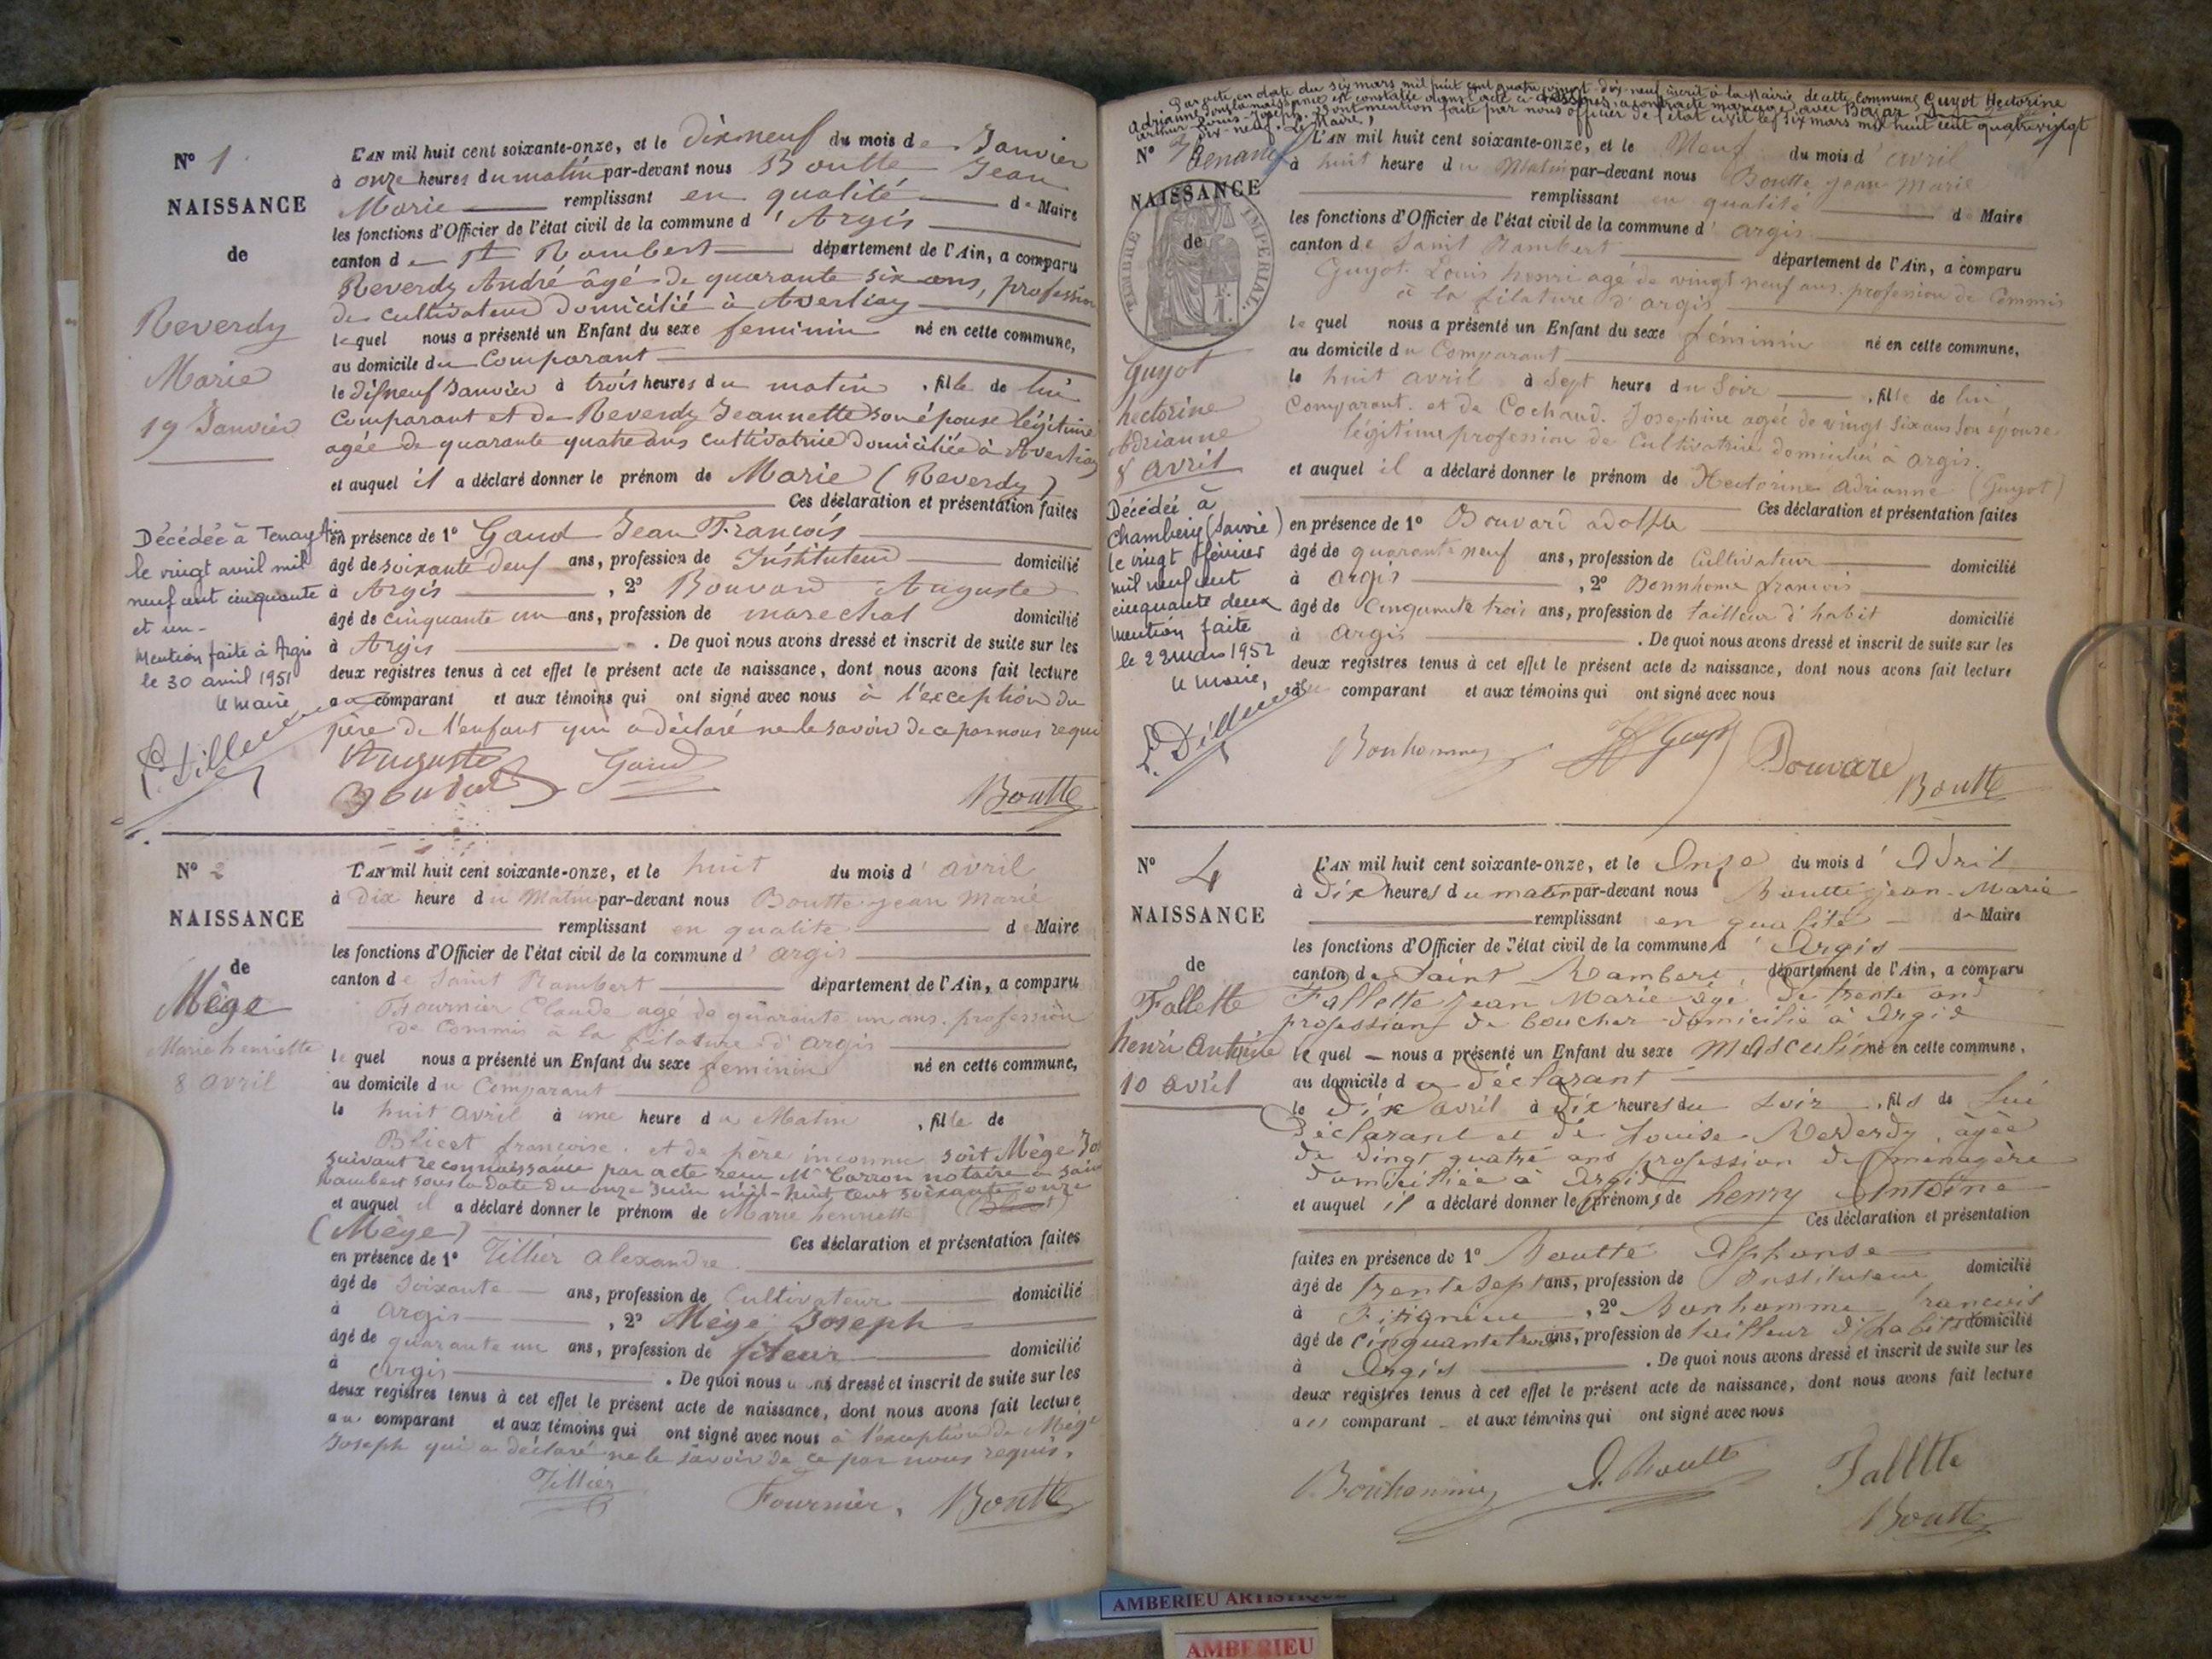 N° 1
NAISSANCE
de
Reverdy
Marie
19 Janvier
Décédée à Tenay Ain
le vingt avril mil
neuf cent cinquante
et un -
Mention faite à Argis
le 30 avril 1951
le maire,
L'AN mil huit cent soixante-onze, et le dix neuf du mois de Janvier
à onze heures du matin par-devant nous Boutte Jean
Marie remplissant en qualité de Maire
les fonctions d'Officier de l'état civil de la commune d'Argis
canton de St Rambert département de l'Ain, a comparu
Reverdy André âgé de quarante six ans, profession
de cultivateur domicilié à Averliaz
lequel nous a présenté un Enfant du sexe feminin né en cette commune,
au domicile du Comparant
le dixneuf Janvier à trois heures du matin, fille de lui
Comparant et de Reverdy Jeannette son épouse légitime
agée de quarante quatre ans cultivatrice domiciliée à Averliaz
et auquel il a déclaré donner le prénom de Marie (Reverdy)
Ces déclaration et présentation faites
en présence de 1° Gaud Jean François
âgé de soixante deux ans, profession de Instituteur domicilié
à Argis, 2° Bouvard Auguste
âgé de cinquante un ans, profession de marechal domicilié
à Argis. De quoi nous avons dressé et inscrit de suite sur les
deux registres tenus à cet effet le présent acte de naissance, dont nous avons fait lecture
au comparant et aux témoins qui ont signé avec nous à l'exception du
père de l'enfant qui a déclaré ne le savoir de ce par nous requis
Auguste
Bouvard Gaud
Boutte
N° 2
NAISSANCE
de
Mège
Marie henriette
8 avril
L'AN mil huit cent soixante-onze, et le huit du mois d'avril
à Dix heure du Matin par-devant nous Boutte jean Marie
remplissant en qualité de Maire
les fonctions d'Officier de l'état civil de la commune d'argis
canton de Saint Rambert département de l'Ain, a comparu
Fournier Claude agé de quarante un ans. profession
de Commis à la filature d'argis
le quel nous a présenté un Enfant du sexe feminin né en cette commune,
au domicile du Comparant
le huit avril à une heure du Matin, fille de
françoise. et de père inconnu soit Mège
suivant reconnaissance par acte reçu Mr Carron notaire à Saint
Rambert sous la date du onze Juin mil-huit cent soixante onze
et auquel il a déclaré donner le prénom de Marie henriette
(Mège) Ces déclaration et présentation faites
en présence de 1° Tillier alexandre
âgé de Soixante ans, profession de Cultivateur domicilié
à argis, 2° Mège Joseph
âgé de quarante un ans, profession de fileur domicilié
à argis. De quoi nous avons dressé et inscrit de suite sur les
deux registres tenus à cet effet le présent acte de naissance, dont nous avons fait lecture
au comparant et aux témoins qui ont signé avec nous à l'exception de Mège
Joseph qui a déclaré ne le savoir de ce par nous requis.
Tillier Fournier, Boutte
Par acte en date du six mars mil huit cent quatre vingt-dix-neuf inscrit à la Mairie de cette Commune, Guyot Hectorine
Adrianne dont la naissance est constatée dans l'acte ci-dessous, a contracté mariage avec
Arthur-Louis-Joseph. Dont mention faite par nous officier de l'état civil le six mars mil huit cent quatre vingt
dix-neuf. Le Maire,
N° 3
NAISSANCE
de
TIMBRE IMPÉRIAL.
Guyot
hectorine
Adrianne
8 avril
Décédée à
Chambery (Savoie)
le vingt février
mil neuf cent
cinquante deux
Mention faite
le 22 mars 1952
le maire,
L'AN mil huit cent soixante-onze, et le Neuf du mois d'avril
à huit heure du Matin par-devant nous Boutte, jean Marie
remplissant en qualité de Maire
les fonctions d'Officier de l'état civil de la commune d'argis
canton de Saint Rambert département de l'Ain, a comparu
Guyot. Louis henri agé de vingt neuf ans. profession de Commis
à la filature d'argis
le quel nous a présenté un Enfant du sexe féminin né en cette commune,
au domicile du Comparant
le huit avril à Sept heure du Soir, fille de lui
Comparant. et de Cochaud. Josephine agée de vingt Six ans Son épouse
légitime profession de Cultivatrice domicilié à argis.
et auquel il a déclaré donner le prénom de Hectorine adrianne (Guyot)
Ces déclaration et présentation faites
en présence de 1° Bouvard adolfe
âgé de quarante neuf ans, profession de Cultivateur domicilié
à argis, 2° Bonnhome francois
âgé de Cinquante trois ans, profession de tailleur d'habit domicilié
à argis. De quoi nous avons dressé et inscrit de suite sur les
deux registres tenus à cet effet le présent acte de naissance, dont nous avons fait lecture
au comparant et aux témoins qui ont signé avec nous
Bonhomme Guyot Bouvard Boutte
N° 4
NAISSANCE
de
Fallette
henri Antoine
10 avril
L'AN mil huit cent soixante-onze, et le Onze du mois d'Avril
à Dix heures du matin par-devant nous Boutte jean-Marie
remplissant en qualité de Maire
les fonctions d'Officier de l'état civil de la commune d'Argis
canton de Saint Rambert département de l'Ain, a comparu
Fallette jean Marie âgé de trente ans
profession de boucher domicilié à Argis
le quel nous a présenté un Enfant du sexe masculin né en cette commune,
au domicile du déclarant
le Dix avril à Dix heures du soir, fils de lui
Déclarant et de Louise Reverdy âgée
de vingt quatre ans profession de ménagère
domiciliée à Argis
et auquel il a déclaré donner les prénoms de henry Antoine
Ces déclaration et présentation
faites en présence de 1° Boutte Alphonse
âgé de trente sept ans, profession de Instituteur domicilié
à, 2° Bonhomme francois
âgé de cinquante trois ans, profession de tailleur d'habits domicilié
à Argis. De quoi nous avons dressé et inscrit de suite sur les
deux registres tenus à cet effet le présent acte de naissance, dont nous avons fait lecture
au comparant et aux témoins qui ont signé avec nous
Bonhomme A. Boutte Fallette
Boutte
AMBERIEU ARTISTIQUE
AMBERIEU